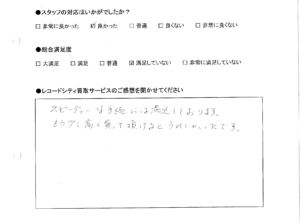 ●スタッフの対応はいかがでしたか？
□非常に良かった ☑良かった □普通 □良くない □非常に良くない
●総合満足度
□大満足 □満足 □普通 ☑満足していない □非常に満足していない
●レコードシティ買取サービスのご感想を聞かせてください
スピーディーな手続には満足しております。
もう少し高く買って頂けるとうれしかったです。